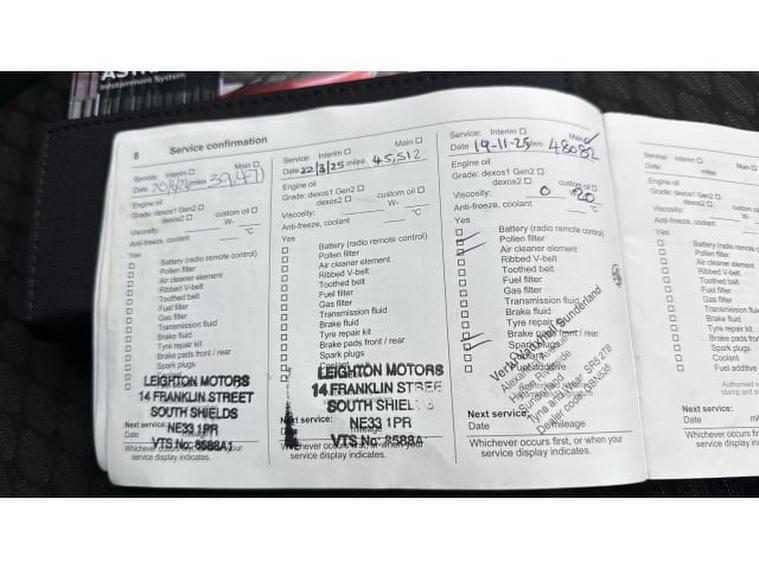 Infotainment System
8 Service confirmation
Service: Interim Main
Date miles 39,471
Engine oil
Grade: dexos1 Gen2
dexos2 custom oil
Viscosity: W-
Anti-freeze, coolant °C
Yes
Battery (radio remote control)
Pollen filter
Air cleaner element
Ribbed V-belt
Toothed belt
Fuel filter
Gas filter
Transmission fluid
Brake fluid
Tyre repair kit
Brake pads front / rear
Spark plugs
LEIGHTON MOTORS
14 FRANKLIN STREET
SOUTH SHIELDS
NE33 1PR
VTS No: 8588A1
Next service:
Date
Whichever occurs first, or when your
service display indicates.
Service: Interim Main
Date 22/3/25 miles 45,512
Engine oil
Grade: dexos1 Gen2
dexos2 custom oil
Viscosity: W-
Anti-freeze, coolant °C
Yes
Battery (radio remote control)
Pollen filter
Air cleaner element
Ribbed V-belt
Toothed belt
Fuel filter
Gas filter
Transmission fluid
Brake fluid
Tyre repair kit
Brake pads front / rear
Spark plugs
Coolant
LEIGHTON MOTORS
14 FRANKLIN STREE
SOUTH SHIELDS
NE33 1PR
VTS No: 8588A
Next service:
Date mileage
Whichever occurs first, or when your
service display indicates.
Service: Interim Main
Date 19-11-25 miles 48082
Engine oil
Grade: dexos1 Gen2
dexos2 custom oil
Viscosity: 0 W- 20
Anti-freeze, coolant °C
Yes
Battery (radio remote control)
Pollen filter
Air cleaner element
Ribbed V-belt
Toothed belt
Fuel filter
Gas filter
Transmission fluid
Brake fluid
Tyre repair kit
Brake pads front / rear
Spark plugs
Coolant
Fuel additive
Sunderland
Tyne and Wear SR5 2TB
Dealer code: GBN535
Next service:
Date mileage
Whichever occurs first, or when your
service display indicates.
Service: Interim
Date miles
Engine oil
Grade: dexos1 Gen2
dexos2
Viscosity:
Anti-freeze, coolant
Yes
Battery (radio
Pollen filter
Air cleaner element
Ribbed V-belt
Toothed belt
Fuel filter
Gas filter
Transmission fluid
Brake fluid
Tyre repair kit
Brake pads front
Spark plugs
Coolant
Fuel additive
Next service:
Date
Whichever occurs
service display